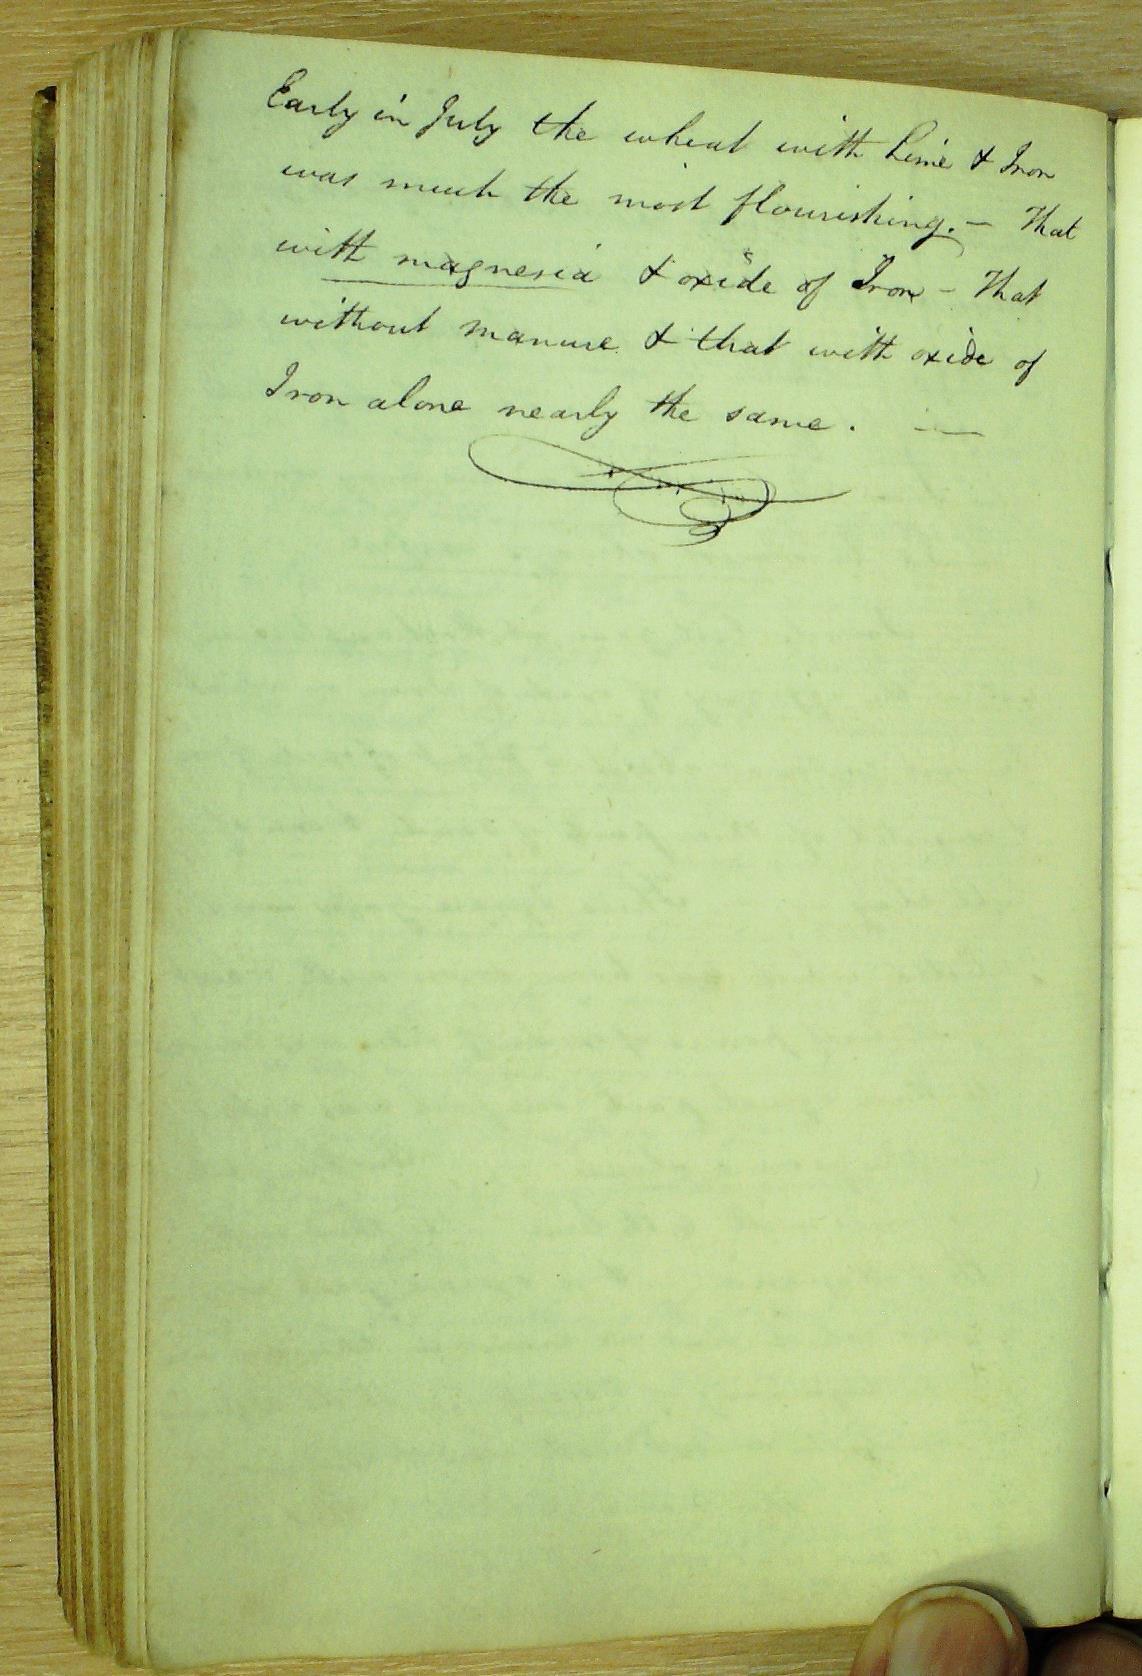 Early in July the wheat with Lime & Iron
was much the most flourishing. — That
with magnesia & oxide of Iron — That
without manure & that with oxide of
Iron alone nearly the same. —